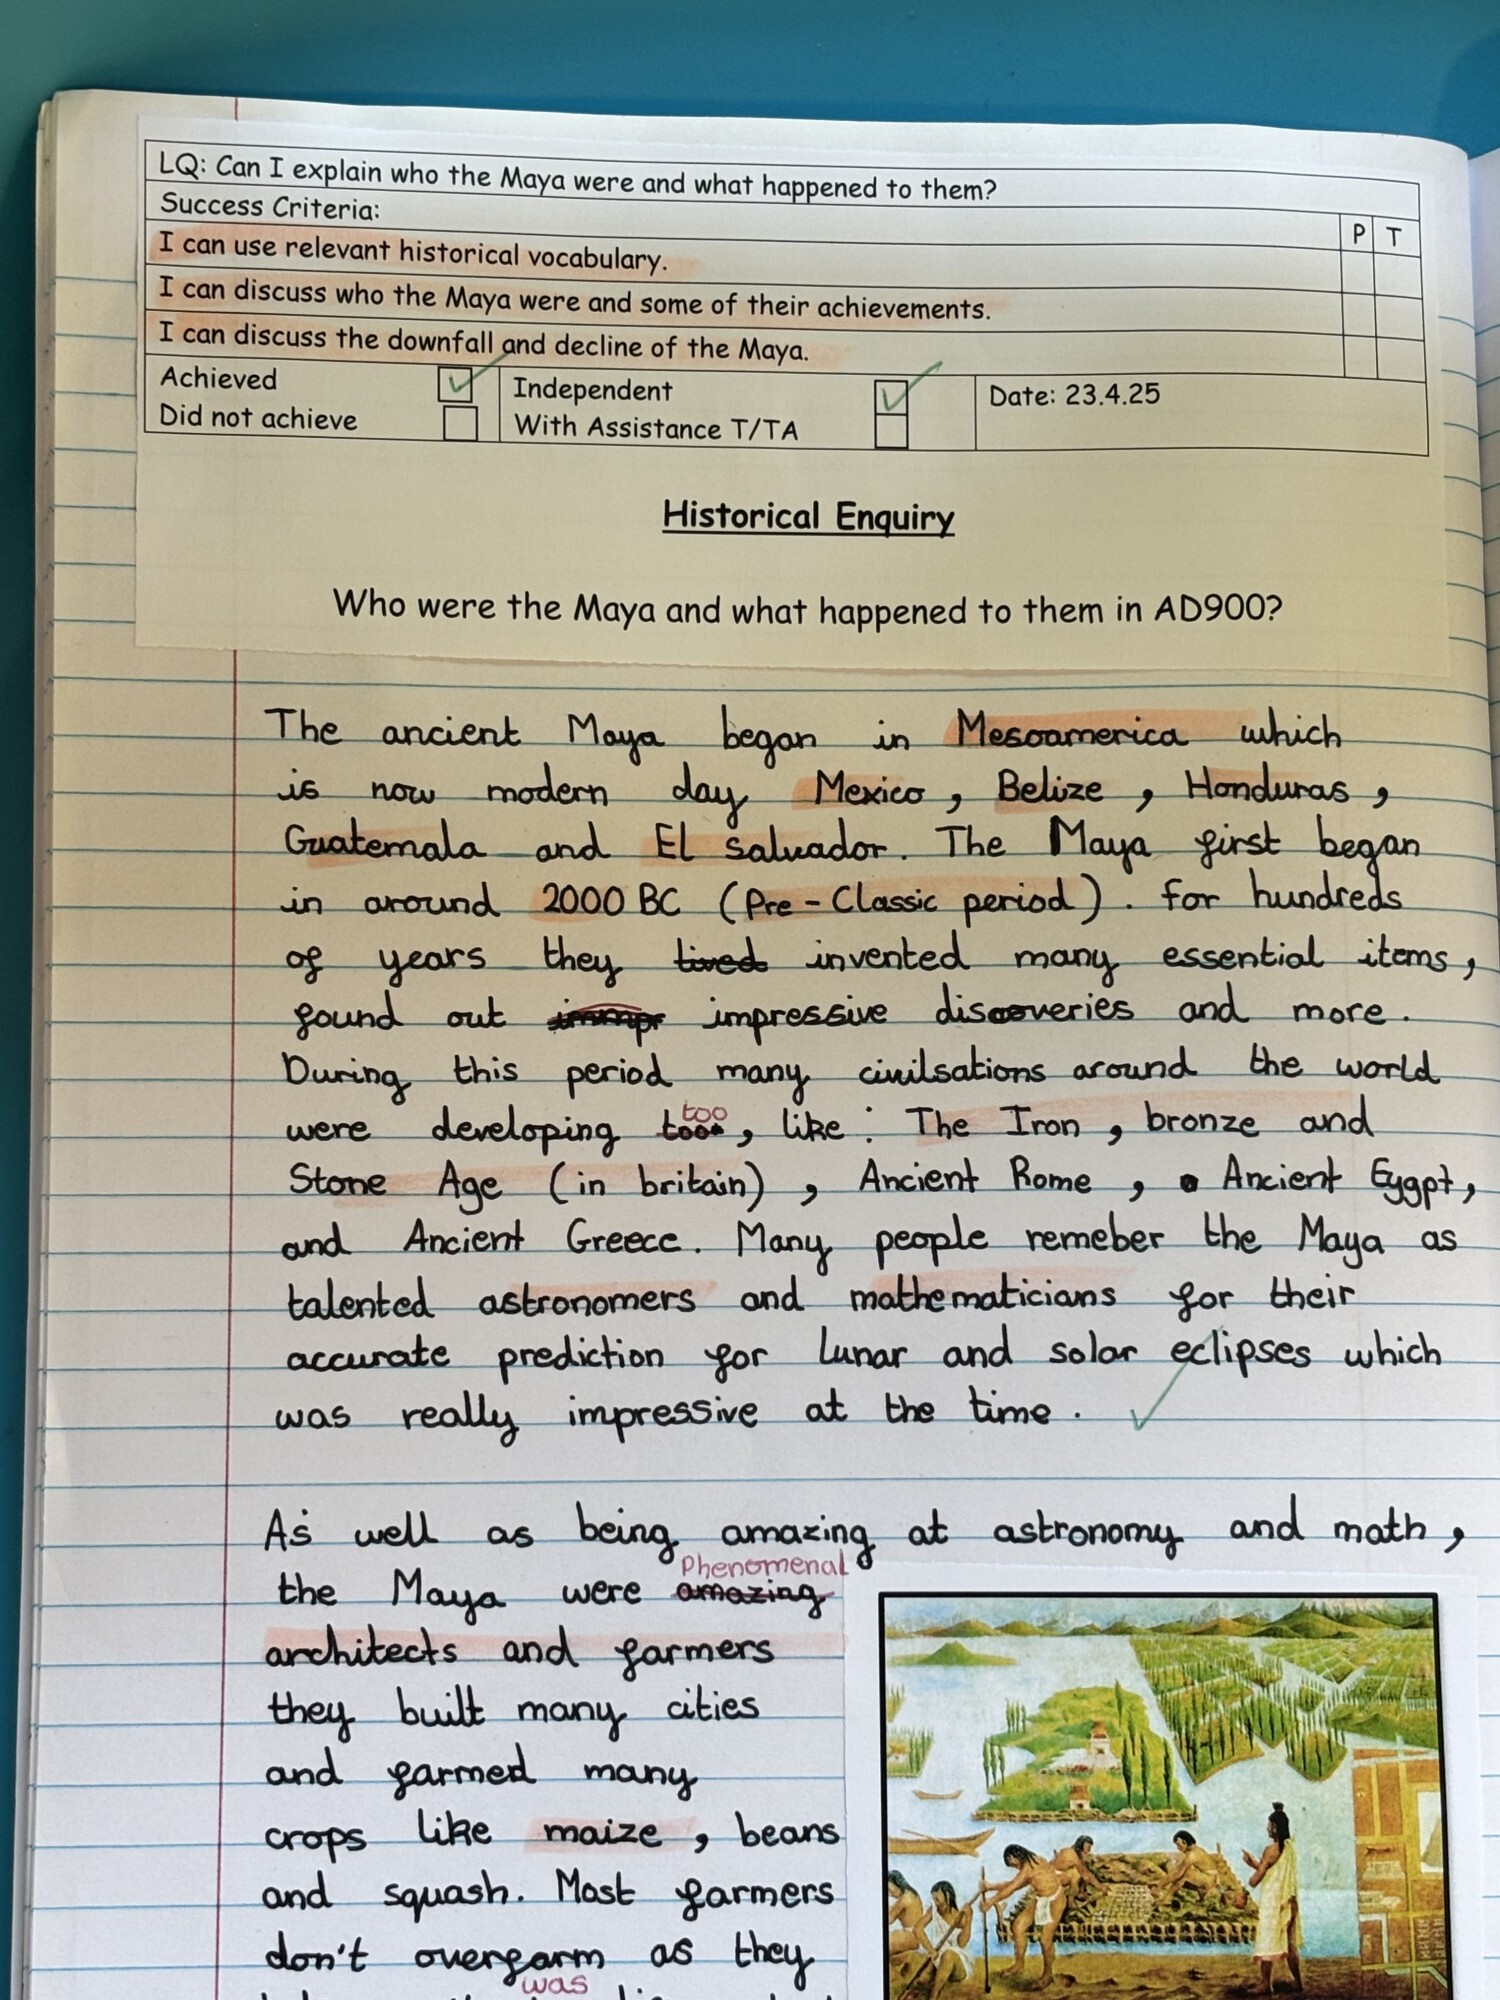 LQ: Can I explain who the Maya were and what happened to them?
Success Criteria:
P T
I can use relevant historical vocabulary.
I can discuss who the Maya were and some of their achievements.
I can discuss the downfall and decline of the Maya.
Achieved Independent Date: 23.4.25
Did not achieve With Assistance T/TA
Historical Enquiry
Who were the Maya and what happened to them in AD900?
The ancient Maya began in Mesoamerica which
is now modern day Mexico, Belize, Honduras,
Guatemala and El salvador. The Maya first began
in around 2000 BC (Pre-Classic period). for hundreds
of years they lived invented many essential items,
found out immpr impressive discoveries and more.
During this period many civilsations around the world
too
were developing too, like: The Iron, bronze and
Stone Age (in britain), Ancient Rome, Ancient Eygpt,
and Ancient Greece. Many people remeber the Maya as
talented astronomers and mathematicians for their
accurate prediction for lunar and solar eclipses which
was really impressive at the time.
As well as being amazing at astronomy and math,
Phenomenal
the Maya were amazing
architects and farmers
they built many cities
and farmed many
crops like maize, beans
and squash. Most farmers
don't overfarm as they
was